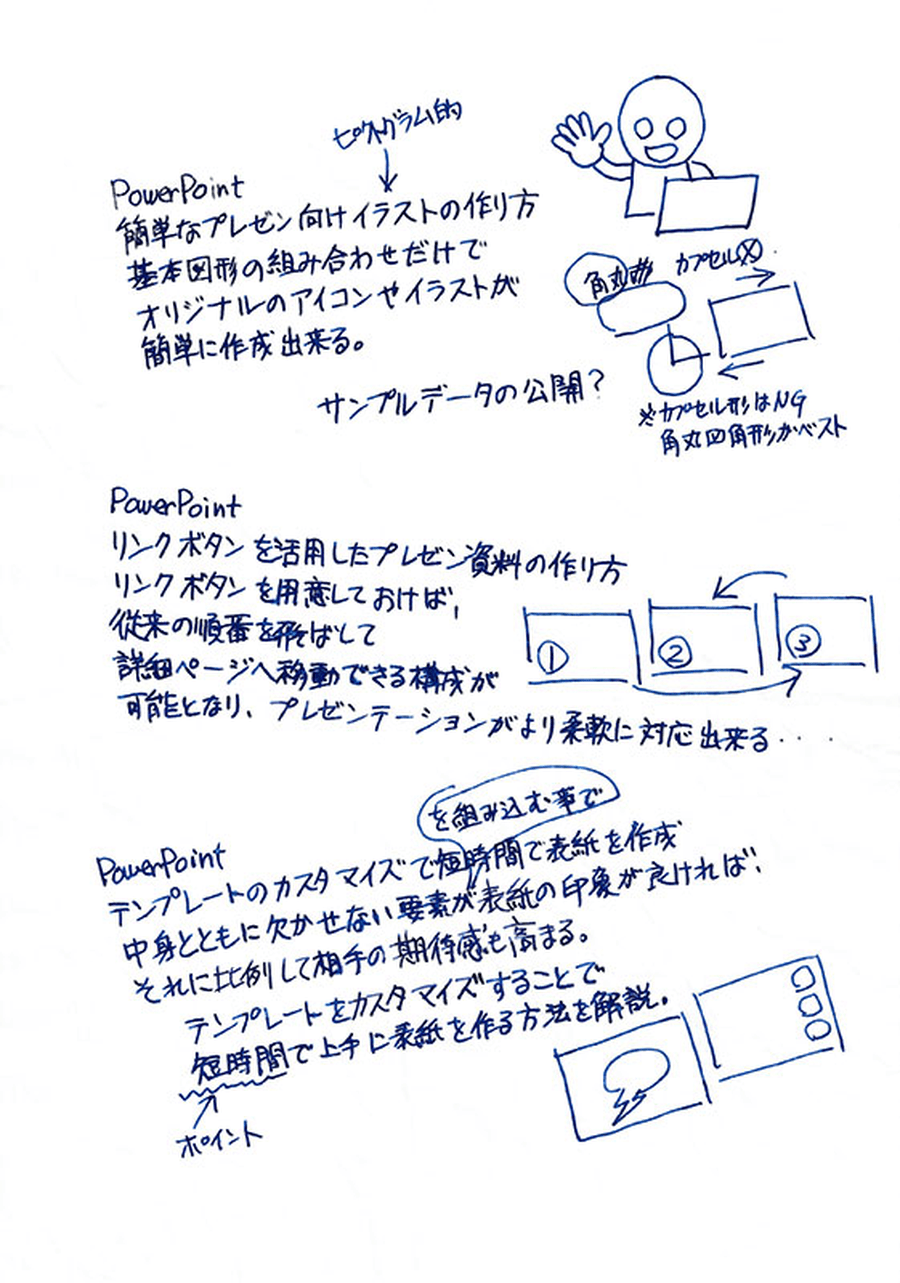 ピクトグラム的
PowerPoint
簡単なプレゼン向けイラストの作り方
基本図形の組み合わせだけで
オリジナルのアイコンやイラストが
簡単に作成出来る。
サンプルデータの公開?
角丸形 カプセル
※カプセル形はNG
角丸四角形がベスト
PowerPoint
リンクボタンを活用したプレゼン資料の作り方
リンクボタンを用意しておけば、
従来の順番を飛ばして
詳細ページへ移動できる構成が
可能となり、プレゼンテーションがより柔軟に対応出来る・・・・
① ② ③
を組み込む事で
PowerPoint
テンプレートのカスタマイズで短時間で表紙を作成
中身とともに欠かせない要素が表紙の印象が良ければ、
それに比例して相手の期待感も高まる。
テンプレートをカスタマイズすることで
短時間で上手に表紙を作る方法を解説。
ポイント